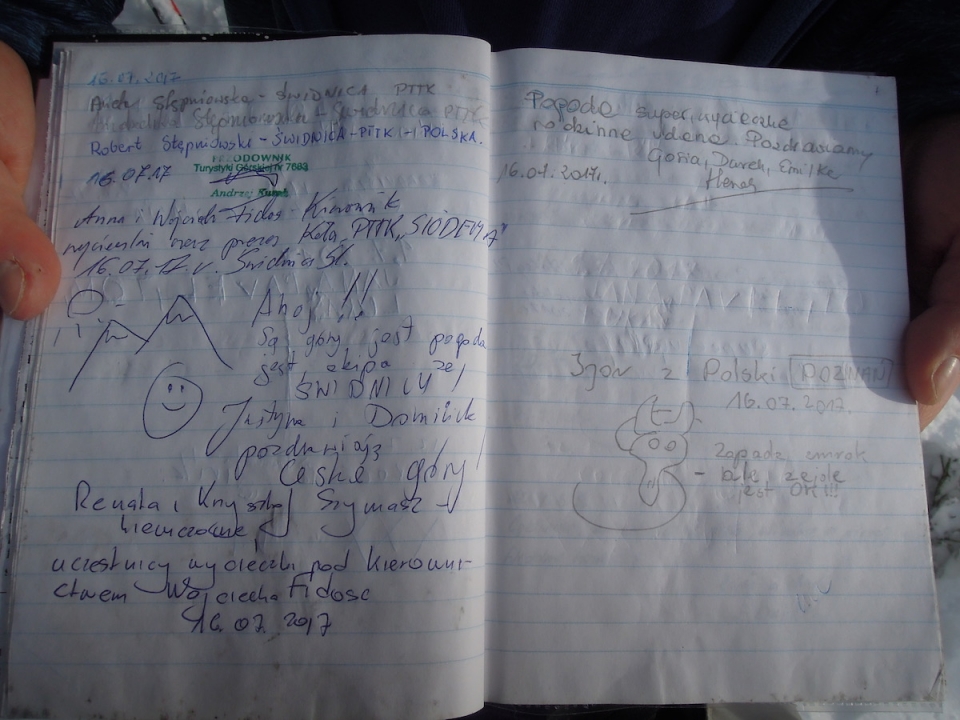 16.07.2017
Stępniowska - ŚWIDNICA PTTK
Stępniowska - Świdnica PTTK
Robert Stępniowski - ŚWIDNICA - PTTK - POLSKA.
PRZODOWNIK
Turystyki Górskiej Nr 7683
16.07.17
Andrzej
Anna i Wojciech Fidos - Kierownik
wycieczki oraz prezes Koła PTTK „SIÓDEMKA"
16.07.17 r. Świdnica Śl.
Ahoj!!!
Są góry jest pogoda
jest ekipa ze
ŚWIDNICY!
Justyna i Dominik
pozdrawiają
České góry!
Renata i Krzysztof Szymasz
uczestnicy wycieczki pod kierowni-
ctwem Wojciecha Fidosa
16.07.2017
Pogoda super, wycieczka
rodzinna udana. Pozdrawiamy
Gosia, Darek, Emilka
16.07.2017r.
Igor z Polski POZNAŃ
16.07.2017.
Zapada zmrok
- ale zejście
jest OK!!!